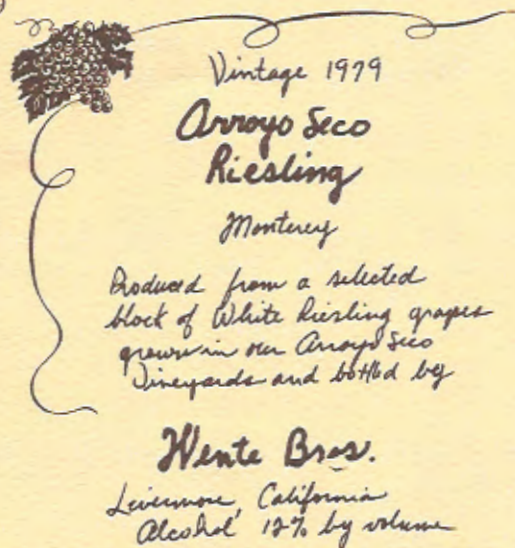 Vintage 1979
Arroyo Seco
Riesling
Monterey
Produced from a selected
block of White Riesling grapes
grown in our Arroyo Seco
Vineyards and bottled by
Wente Bros.
Livermore, California
Alcohol 12% by volume